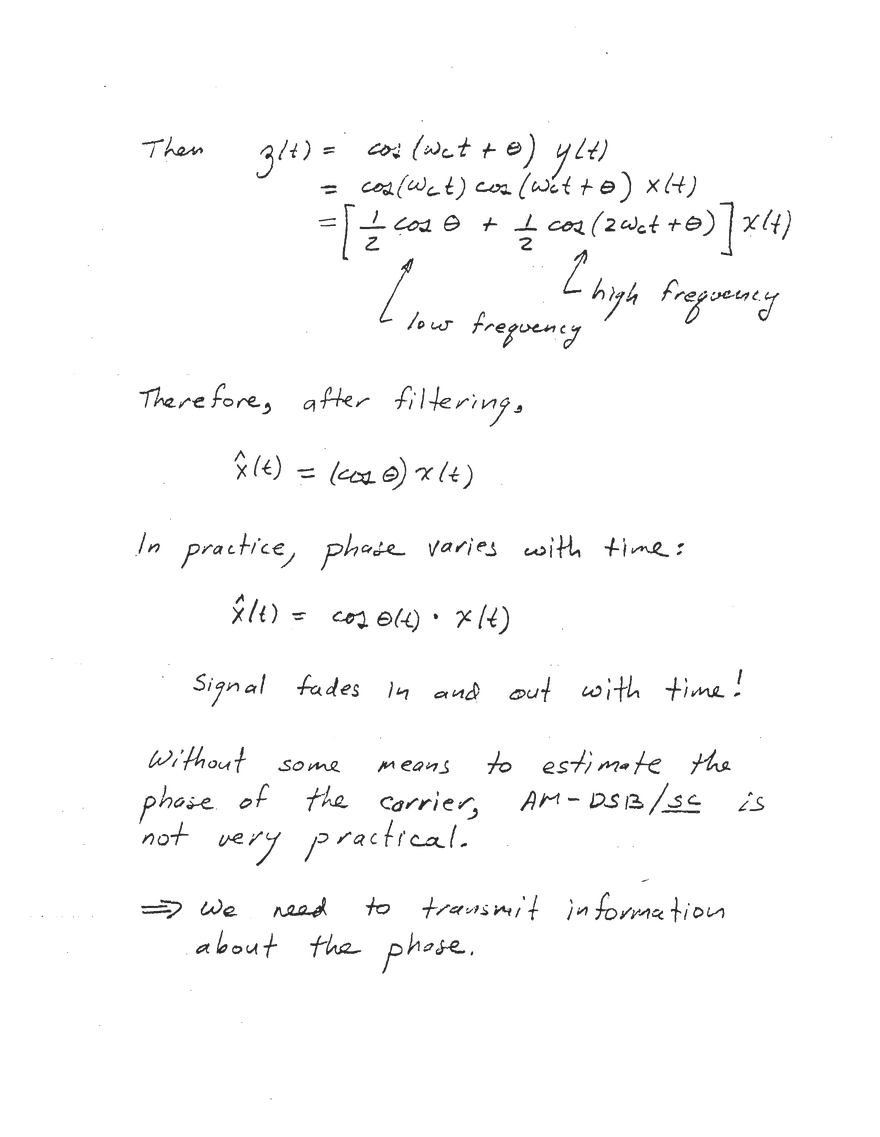 Then z(t) = cos(ωct + θ) y(t)
= cos(ωct) cos(ωct + θ) x(t)
= [1/2 cos θ + 1/2 cos(2ωct + θ)] x(t)
high frequency
low frequency
Therefore, after filtering,
x̂(t) = (cos θ) x(t)
In practice, phase varies with time:
x̂(t) = cos θ(t) · x(t)
Signal fades in and out with time!
Without some means to estimate the
phase of the carrier, AM-DSB/SC is
not very practical.
⇒ We need to transmit information
about the phase.